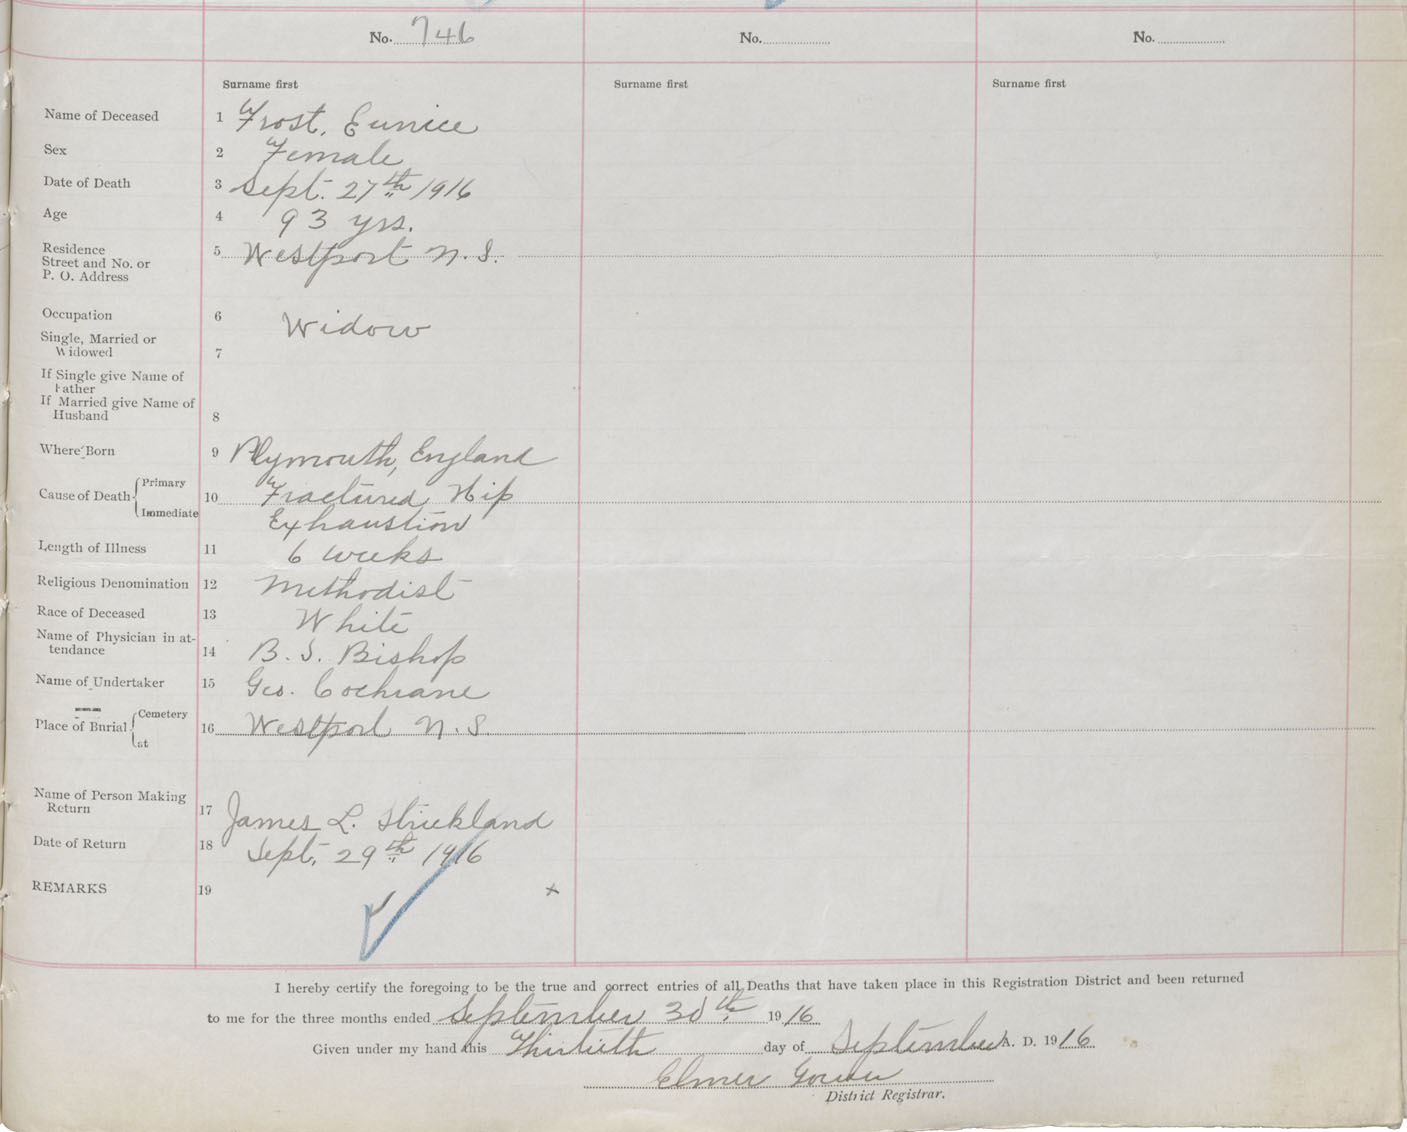 No. 746 No. No.
Surname first Surname first Surname first
Name of Deceased 1 Frost, Eunice
Sex 2 Female
Date of Death 3 Sept. 27th 1916
Age 4 93 yrs.
Residence 5 Westport N.S.
Street and No. or
P. O. Address
Occupation 6 Widow
Single, Married or
Widowed 7
If Single give Name of
Father
If Married give Name of
Husband 8
Where Born 9 Plymouth, England
Cause of Death Primary 10 Fractured Hip
Immediate Exhaustion
Length of Illness 11 6 weeks
Religious Denomination 12 Methodist
Race of Deceased 13 White
Name of Physician in at-
tendance 14 B. S. Bishop
Name of Undertaker 15 Geo. Cochrane
Place of Burial Cemetery 16 Westport N.S.
at
Name of Person Making
Return 17 James L. Strickland
Date of Return 18 Sept. 29th 1916
REMARKS 19 x
I hereby certify the foregoing to be the true and correct entries of all Deaths that have taken place in this Registration District and been returned
to me for the three months ended September 30th 1916
Given under my hand this Thirtieth day of September A. D. 1916
Elmer
District Registrar.